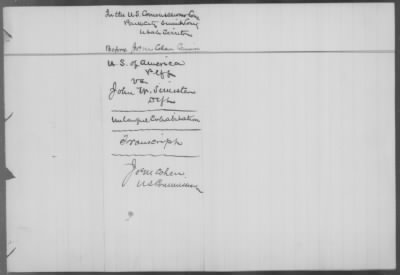 In the U.S. Commissioner's Court
Park City Summit County
Utah Territory
Before Jos M Cohen Comm
U.S. of America
Plff
vs
John W. Simister
Deft
Unlawful Cohabitation
Transcript
Jos M Cohen
US Commissioner